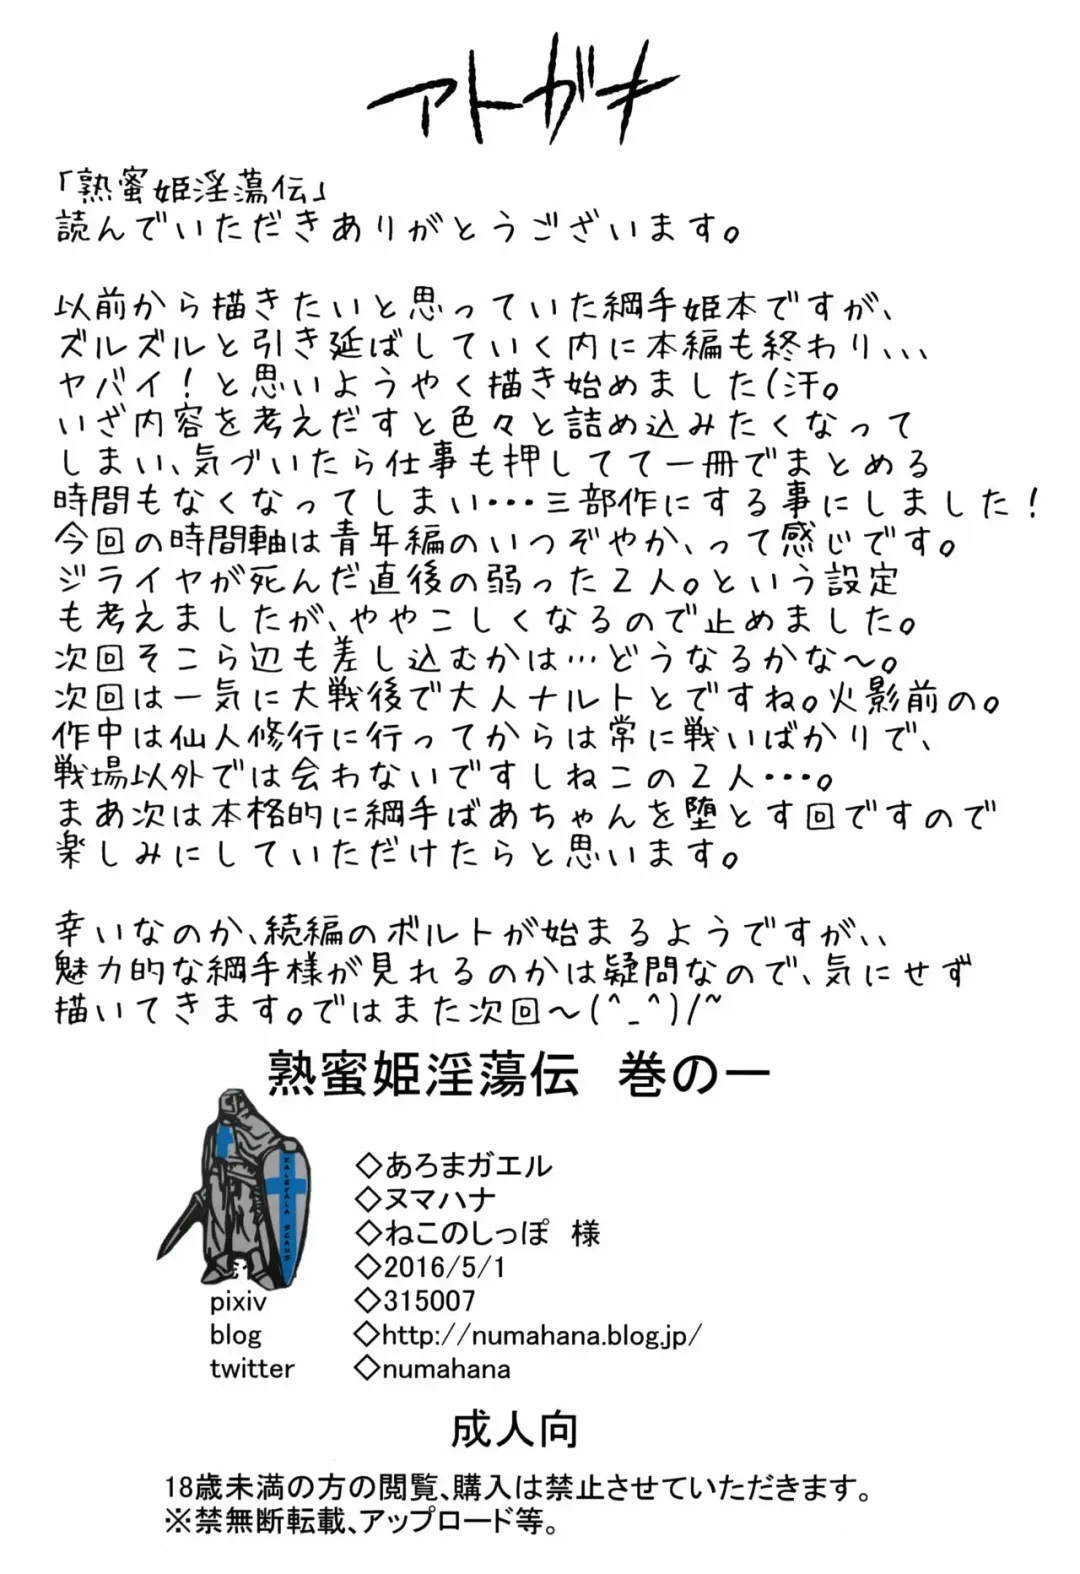 アトガキ
「熟蜜姫淫蕩伝」
読んでいただきありがとうございます。
以前から描きたいと思っていた綱手姫本ですが、
ズルズルと引き延ばしていく内に本編も終わり、、、
ヤバイ！と思いようやく描き始めました(汗。
いざ内容を考えだすと色々と詰め込みたくなって
しまい、気づいたら仕事も押してて一冊でまとめる
時間もなくなってしまい・・・三部作にする事にしました！
今回の時間軸は青年編のいつぞやか、って感じです。
ジライヤが死んだ直後の弱った２人。という設定
も考えましたが、ややこしくなるので止めました。
次回そこら辺も差し込むかは…どうなるかな〜。
次回は一気に大戦後で大人ナルトとですね。火影前の。
作中は仙人修行に行ってからは常に戦いばかりで、
戦場以外では会わないですしねこの２人・・・。
まあ次は本格的に綱手ばあちゃんを堕とす回ですので
楽しみにしていただけたらと思います。
幸いなのか、続編のボルトが始まるようですが、、
魅力的な綱手様が見れるのかは疑問なので、気にせず
描いてきます。ではまた次回〜(^_^)/~
熟蜜姫淫蕩伝 巻の一
◇あろまガエル
◇ヌマハナ
◇ねこのしっぽ 様
◇2016/5/1
pixiv ◇315007
blog ◇http://numahana.blog.jp/
twitter ◇numahana
KALEVALA SCANS
成人向
18歳未満の方の閲覧、購入は禁止させていただきます。
※禁無断転載、アップロード等。